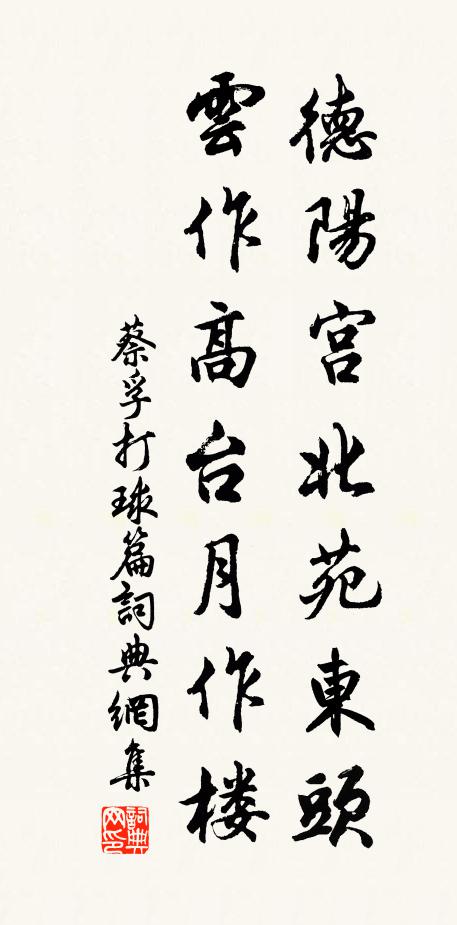 德陽宮北苑東頭
雲作高台月作楼
蔡孚打球篇詞典網集
詞典網印